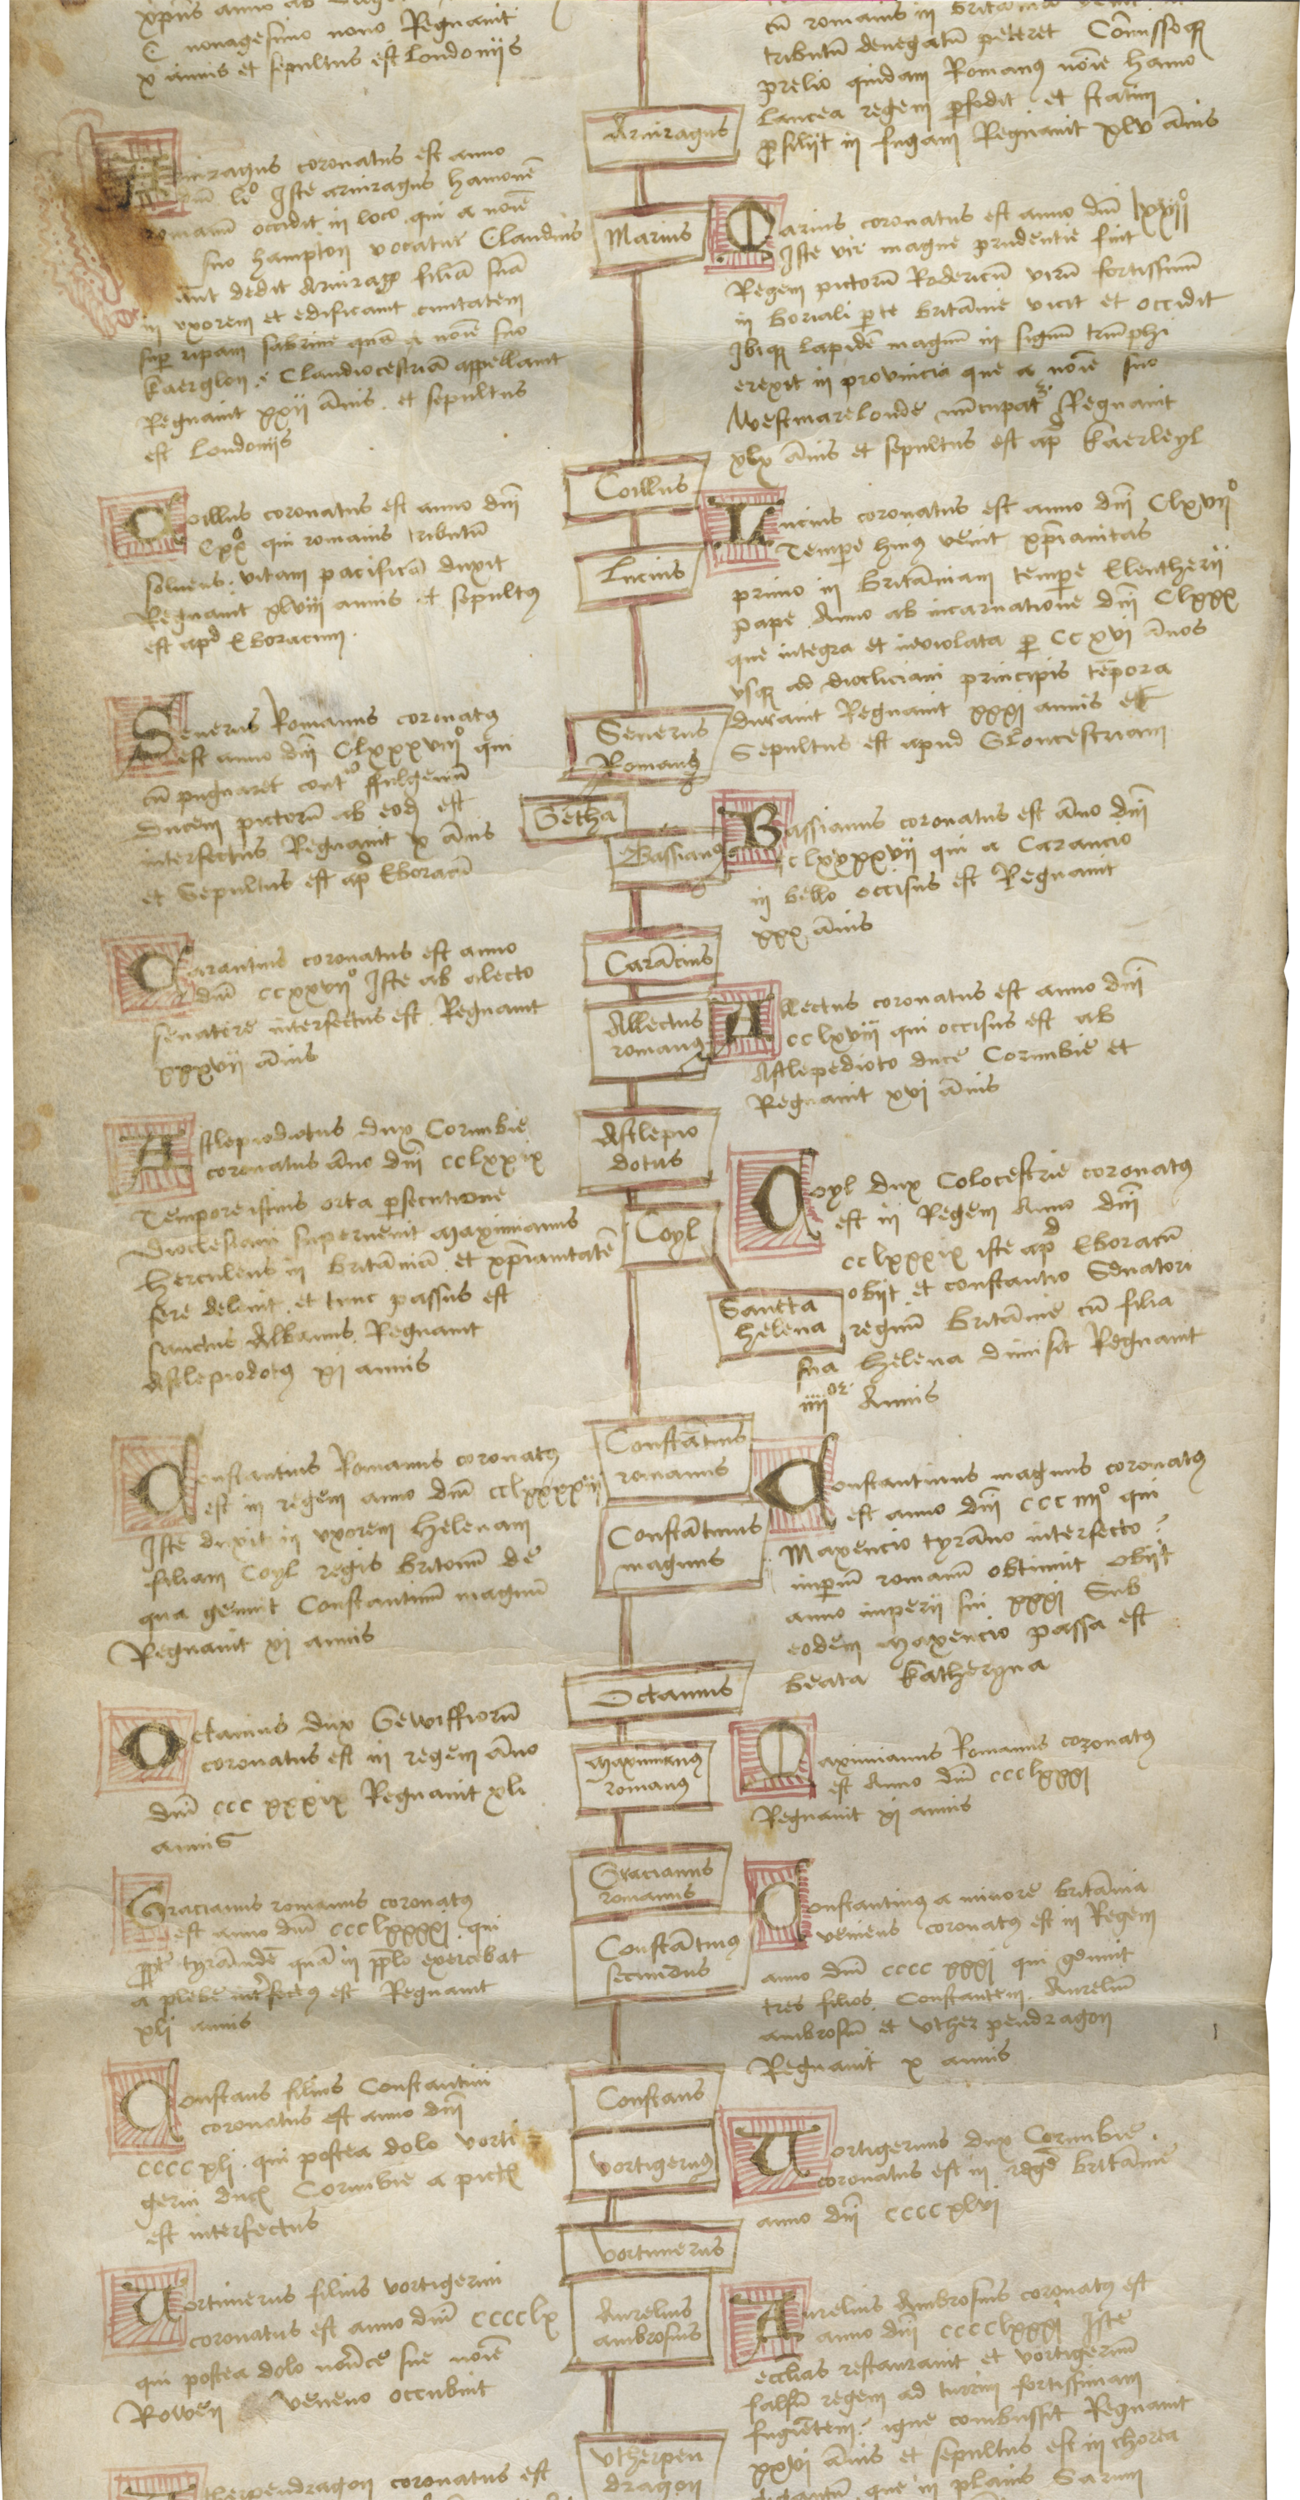 C nonagesimo nono Regnauit
x annis et sepultus est Londoniis
Aruiragus coronatus est anno
Iste aruiragus hamonē
romanū occidit in loco qui a noīe
suo hampton vocatur Claudius
dedit Aruirago filiā suā
in vxorem et edificauit ciuitatem
sup ripam sabrine quā a noīe suo
kaerglou .i. Claudiocestriā appellauit
Regnauit xxii ānis et sepultus
est Londoniis
Coillus coronatus est anno dñi
Cxxo qui romanis tributū
soluens vitam pacificā duxit
Regnauit xlviii annis et sepultus
est apd Eboracum
Seuerus Romanus coronatus
est anno dñi Clxxxviiio qui
cū pugnaret contra ffulgeniū
ducem pictorū ab eod est
interfectus Regnauit x ānis
et sepultus est apd Eboracū
Carancius coronatus est anno
dñi ccxxviio Iste ab alecto
senatore interfectus est Regnauit
xxxvii ānis
Asclepiodotus dux Cornubie
coronatus āno dñi cclxxix
Tempore istius orta psecutione
Dioclesiani superuenit Maximianus
herculeus in britāniā et xp̄ianitatē
fere deleuit et tunc passus est
sanctus Albanus Regnauit
Ascleprodotus xi annis
Constantius Romanus coronatus
est in regem anno dñi cclxxxxii
Iste duxit in vxorem helenam
filiam Coyl regis britonū de
qua genuit Constantinū magnū
Regnauit xi annis
Octauius dux Gewissiorū
coronatus est in regem āno
dñi ccc xxxix Regnauit xli
annis
Gracianus romanus coronatus
est anno dñi ccclxxxxi qui
ppt tyrānidē quā in pplo exercebat
a plebe interfectus est Regnauit
xli annis
Constans filius Constantini
coronatus est anno dñi
ccccxli qui postea dolo vorti=
gerni ducis Cornubie a pictis
est interfectus
Vortimerus filius vortigerni
coronatus est anno dñi cccclx
qui postea dolo nouerce sue noīe
Rowen veneno occubuit
Vtherpendragon coronatus est
Aruiragus
Marius
Coillus
Lucius
Seuerus
Romanus
Getha
Bassianus
Carācius
Allectus
romanus
Asclepio
dotus
Coyl
Sancta
helena
Constātius
romanus
Constātinus
magnus
Octauius
Maximianus
romanus
Gracianus
romanus
Constātinus
secundus
Constans
Vortigernus
Vortimerus
Aurelius
ambrosius
Vtherpen
dragon
cū romanis in britānia
tributū denegatū peteret Cōmissoque
prelio quidam Romanus noīe hamo
lancea regem pfodit et statim
prosiliit in fugam Regnauit xlv ānis
Marius coronatus est anno dñi lxxiiio
Iste vir magne prudentie fuit
Regem pictorū Rodericū virū fortissimū
in boriali pte britānie vicit et occidit
Ibique lapidē magnū in signū triūphi
erexit in prouincia que a noīe suo
Westmarelonde nūcupatur Regnauit
xlix ānis et sepultus est apd kaerleyl
Lucius coronatus est anno dñi Clxviio
Tempe huius venit xp̄ianitas
primo in britāniam tempe Eleutherii
pape Anno ab incarnatione dñi Clxxx
que integra et inuiolata p CC xvi ānos
vsque ad diocliciani principis tēpora
durauit Regnauit xxxi annis et
Sepultus est apud Gloucestriam
Bassianus coronatus est āno dñi
clxxxxvii qui a Carancio
in bello occisus est Regnauit
xxx ānis
Allectus coronatus est anno dñi
cclxviii qui occisus est ab
Asclepedioto duce Cornubie et
Regnauit xvi ānis
Coyl dux Colocestrie coronatus
est in Regem Anno dñi
cclxxxix iste apd Eboracū
obiit et constantio Senatori
regnū britānie cū filia
sua helena dimisit Regnauit
iiiior Annis
Constantinus magnus coronatus
est anno dñi ccciiiio qui
Maxencio tyrāno interfecto
imperiū romanū obtinuit obiit
anno imperii sui xxxi Sub
eodem Maxencio passa est
beata katheryna
Maximianus Romanus coronatus
est Anno dñi ccclxxxi
Regnauit xi annis
Constantinus a minore britānia
veniens coronatus est in Regem
anno dñi cccc xxxi qui genuit
tres filios Constantem Aureliū
ambrosiū et Vther pendragon
Regnauit x annis
Vortigernus dux Cornubie
coronatus est in regē britānie
anno dñi ccccxlvi
Aurelius Ambrosius coronatus est
anno dñi cccclxxxi Iste
ecclias restaurauit et vortigernū
falsū regem ad turrim fortissimam
fugiētem igne combussit Regnauit
xxvi ānis et sepultus est in chorea
gigantū que in planis Sarum